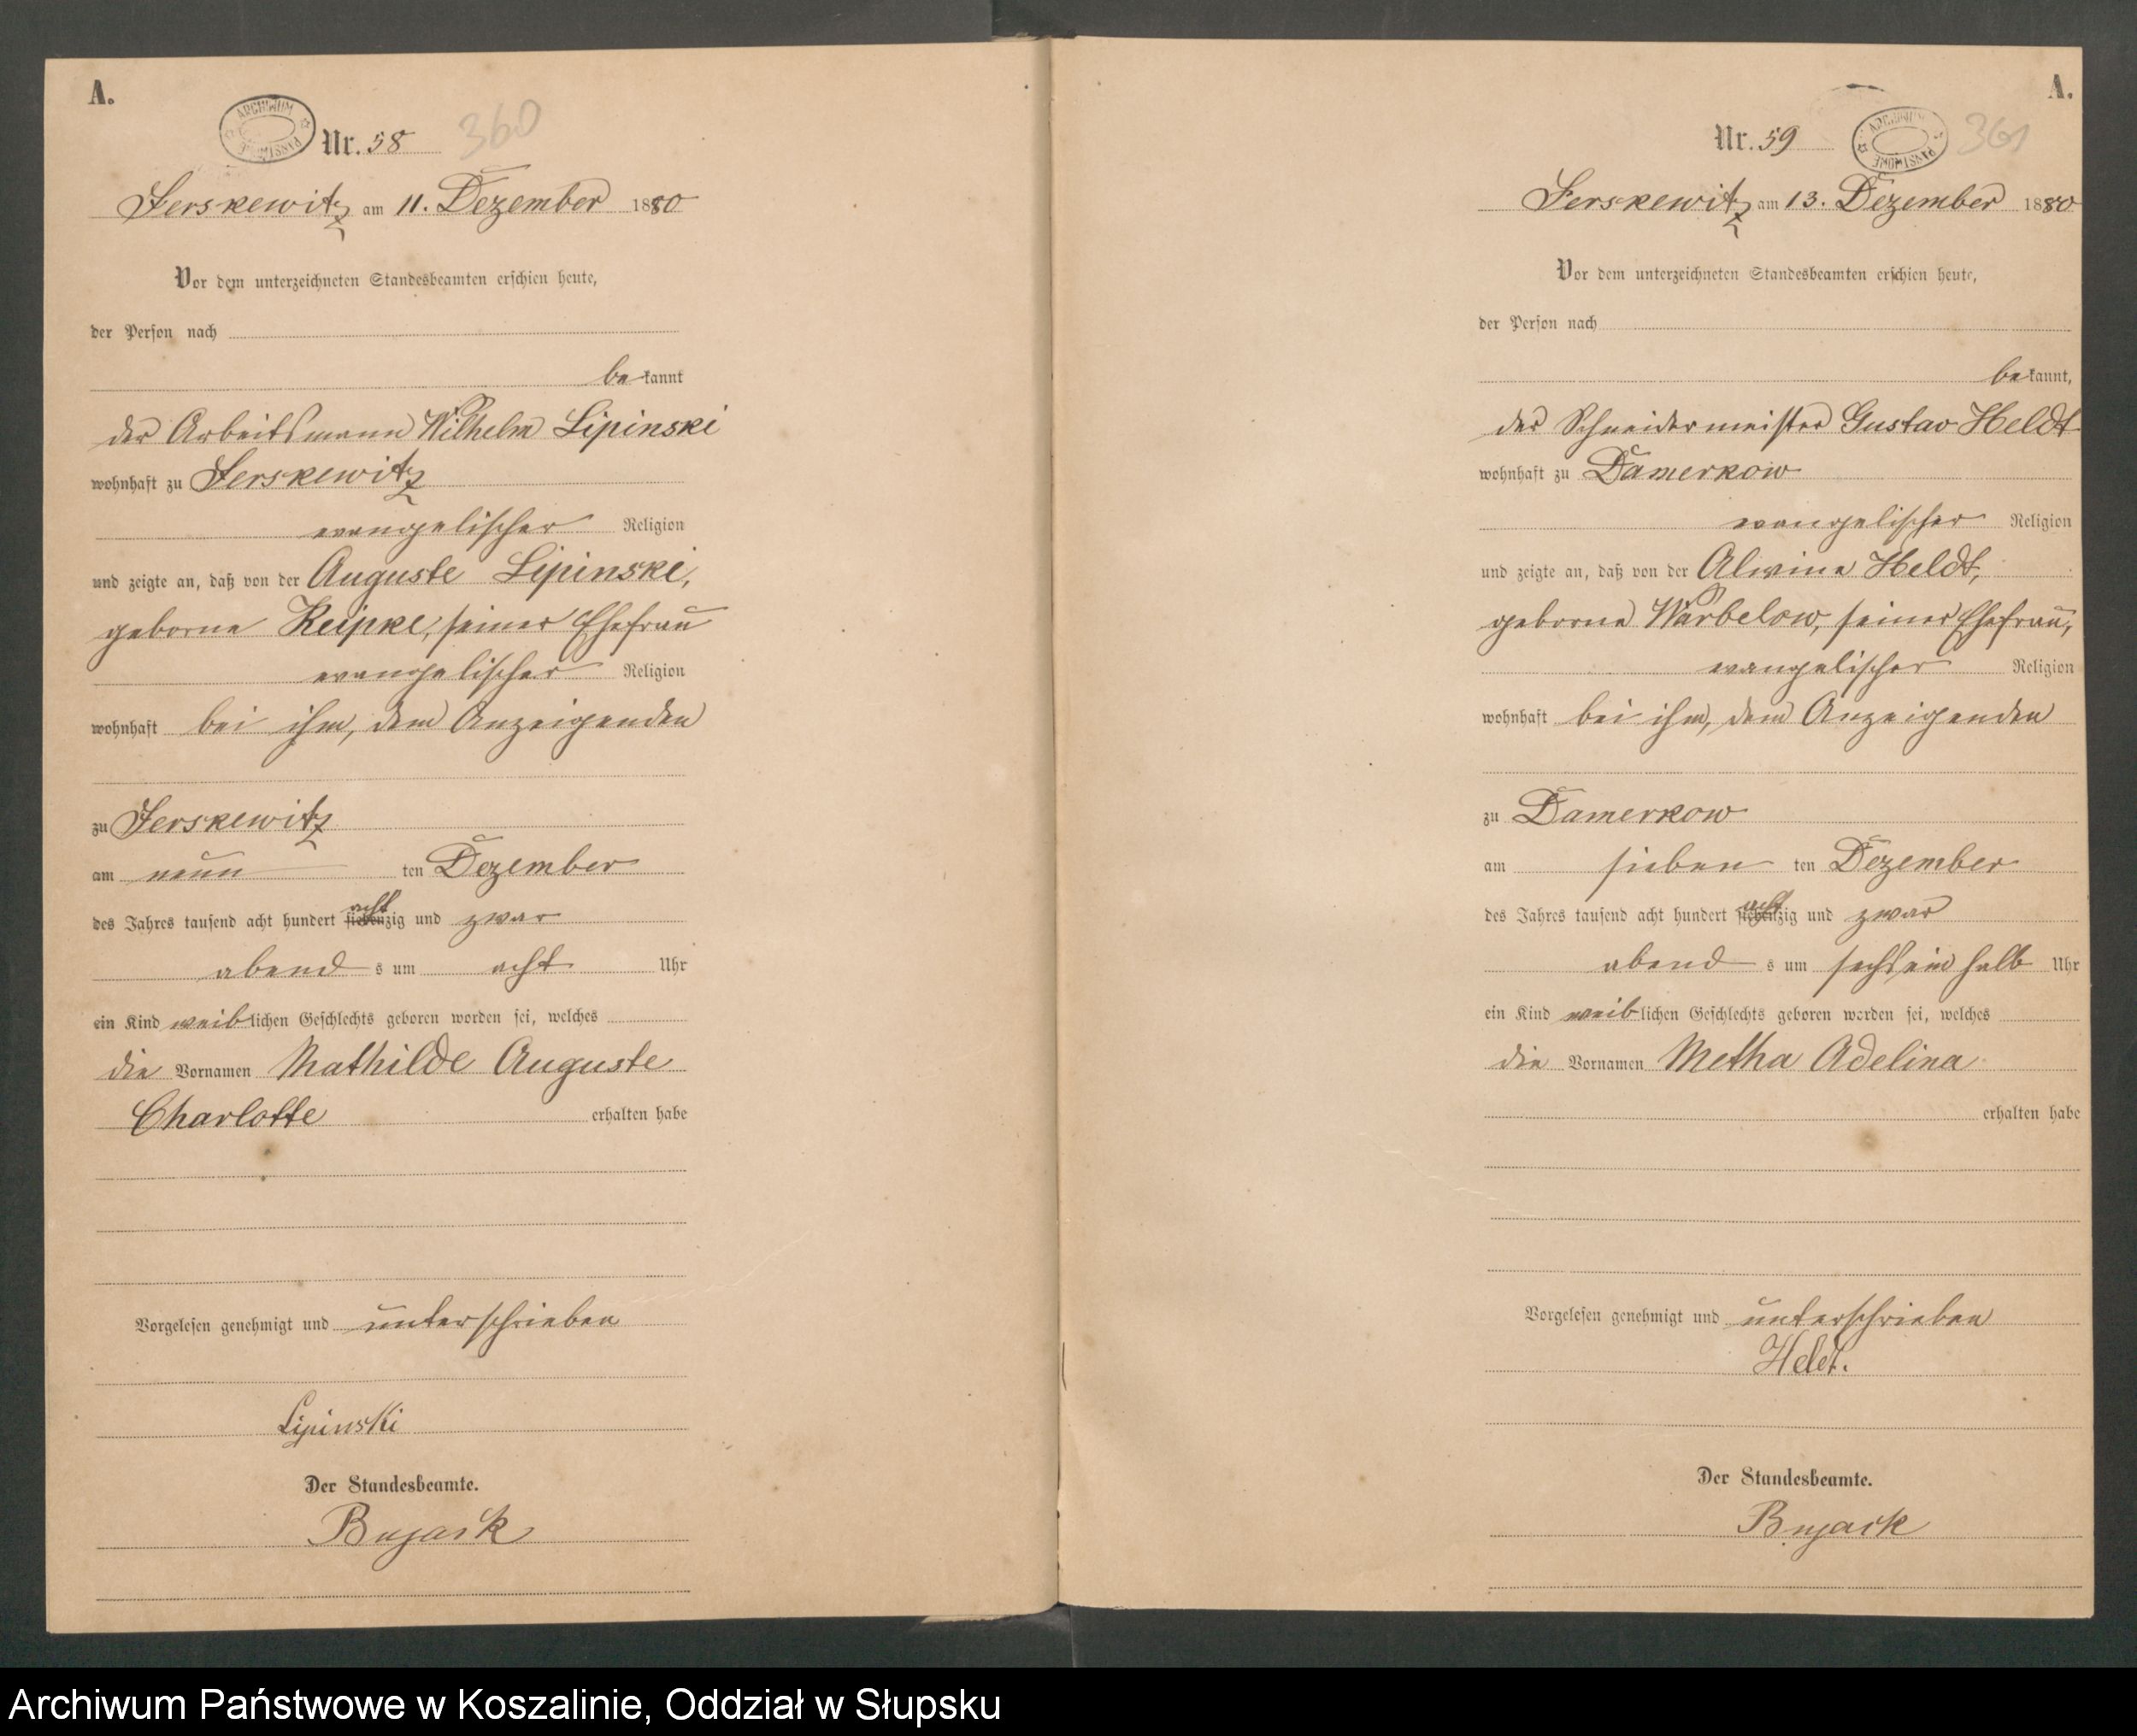 A.
ARCHIWUM PAŃSTWOWE
Nr. 58
360
Jerskewitz am 11. Dezember 1880
Vor dem unterzeichneten Standesbeamten erschien heute,
der Person nach
bekannt
der Arbeitsmann Wilhelm Lipinski
wohnhaft zu Jerskewitz
evangelischer Religion
und zeigte an, daß von der Auguste Lipinski,
geborne Reipke, seiner Ehefrau
evangelischer Religion
wohnhaft bei ihm, dem Anzeigenden
zu Jerskewitz
am neun ten Dezember
acht
des Jahres tausend acht hundert siebenzig und zwar
abend s um acht Uhr
ein Kind weiblichen Geschlechts geboren worden sei, welches
die Vornamen Mathilde Auguste
Charlotte erhalten habe
Vorgelesen genehmigt und unterschrieben
Lipinski
Der Standesbeamte.
Bujack
A.
Nr. 59
ARCHIWUM PAŃSTWOWE
361
Jerskewitz am 13. Dezember 1880
Vor dem unterzeichneten Standesbeamten erschien heute,
der Person nach
bekannt,
der Schneidermeister Gustav Heldt
wohnhaft zu Damerkow
evangelischer Religion
und zeigte an, daß von der Alwine Heldt,
geborne Warbelow, seiner Ehefrau,
evangelischer Religion
wohnhaft bei ihm, dem Anzeigenden
zu Damerkow
am sieben ten Dezember
acht
des Jahres tausend acht hundert siebenzig und zwar
abend s um sechs ein halb Uhr
ein Kind weiblichen Geschlechts geboren worden sei, welches
die Vornamen Metha Adelina
erhalten habe
Vorgelesen genehmigt und unterschrieben
Heldt.
Der Standesbeamte.
Bujack
Archiwum Państwowe w Koszalinie, Oddział w Słupsku